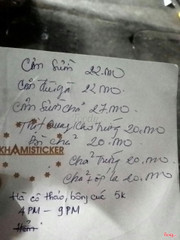 Cơm Sườn 22.000
Cơm đùi gà 22.000
Cơm Sườn chả 27.000
Thịt quay/Kho Trứng 20.000
chả 20.000
Chả Trứng 20.000
chả + ốp la 20.000
KHAMISTICKER
Hà cô thảo, bông cúc 5k
4PM - 9PM